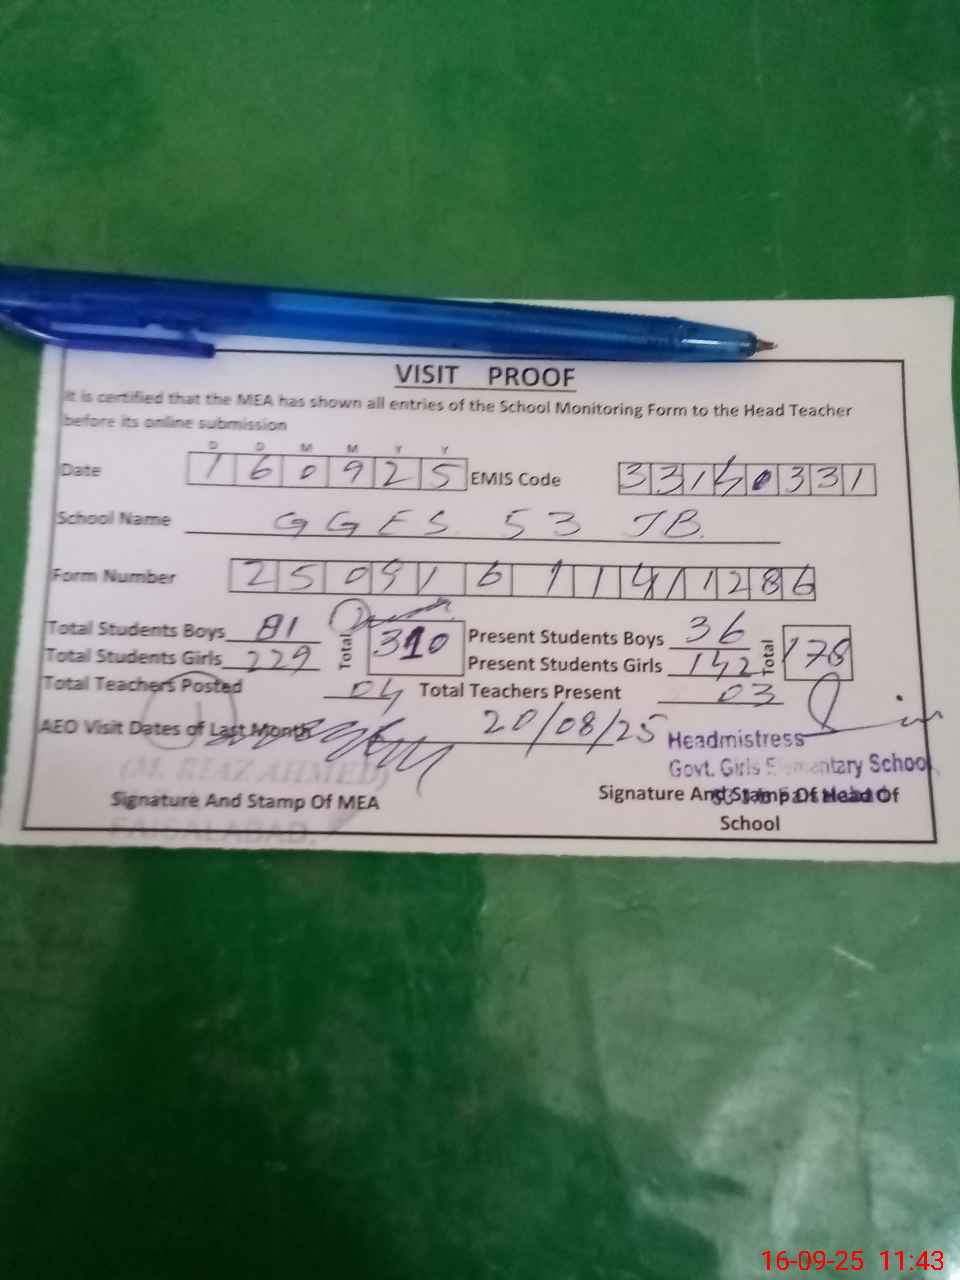 VISIT PROOF
It is certified that the MEA has shown all entries of the School Monitoring Form to the Head Teacher
before its online submission
D D M M Y Y
Date 160925 EMIS Code 33140331
School Name GGES 53 JB.
Form Number 25091611411286
Total Students Boys 81 Total 310 Present Students Boys 36 Total 178
Total Students Girls 229 Present Students Girls 142
Total Teachers Posted 04 Total Teachers Present 03
AEO Visit Dates of Last Month 20/08/25
Headmistress
(M. RIAZ AHMED) Govt. Girls Elementary School
Signature And Stamp Of MEA Signature And Stamp Of Head Of
School
FAISALABAD.
16-09-25 11:43